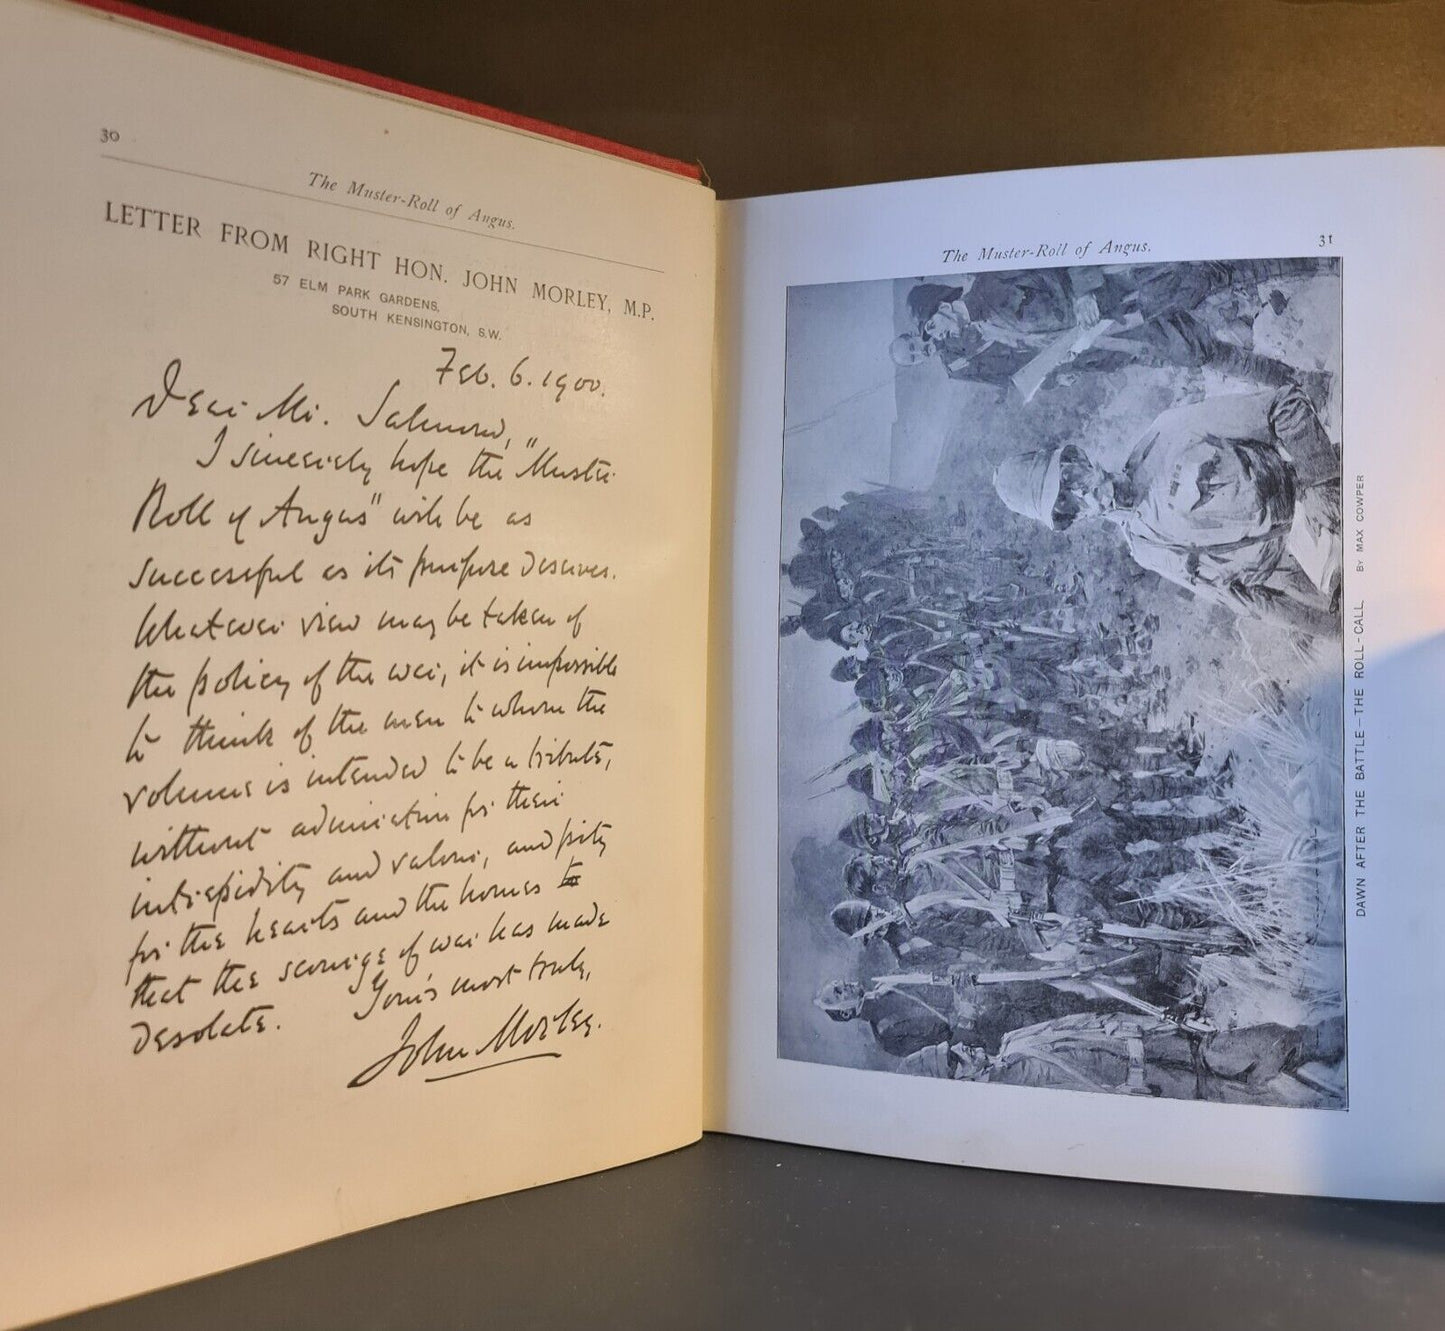 30
The Muster-Roll of Angus.
LETTER FROM RIGHT HON. JOHN MORLEY, M.P.
57 ELM PARK GARDENS,
SOUTH KENSINGTON, S.W.
Feb. 6. 1900.
Dear Mr. Salmond,
I sincerely hope the "Muster
Roll of Angus" will be as
successful as its purpose deserves.
Whatever view may be taken of
the policy of the war, it is impossible
to think of the men to whom the
volume is intended to be a tribute,
without admiration for their
intrepidity and valour, and pity
for the hearts and the homes to
that the scourge of war has made
desolate. Yours most truly,
John Morley.
The Muster-Roll of Angus.
31
DAWN AFTER THE BATTLE - THE ROLL - CALL BY MAX COWPER